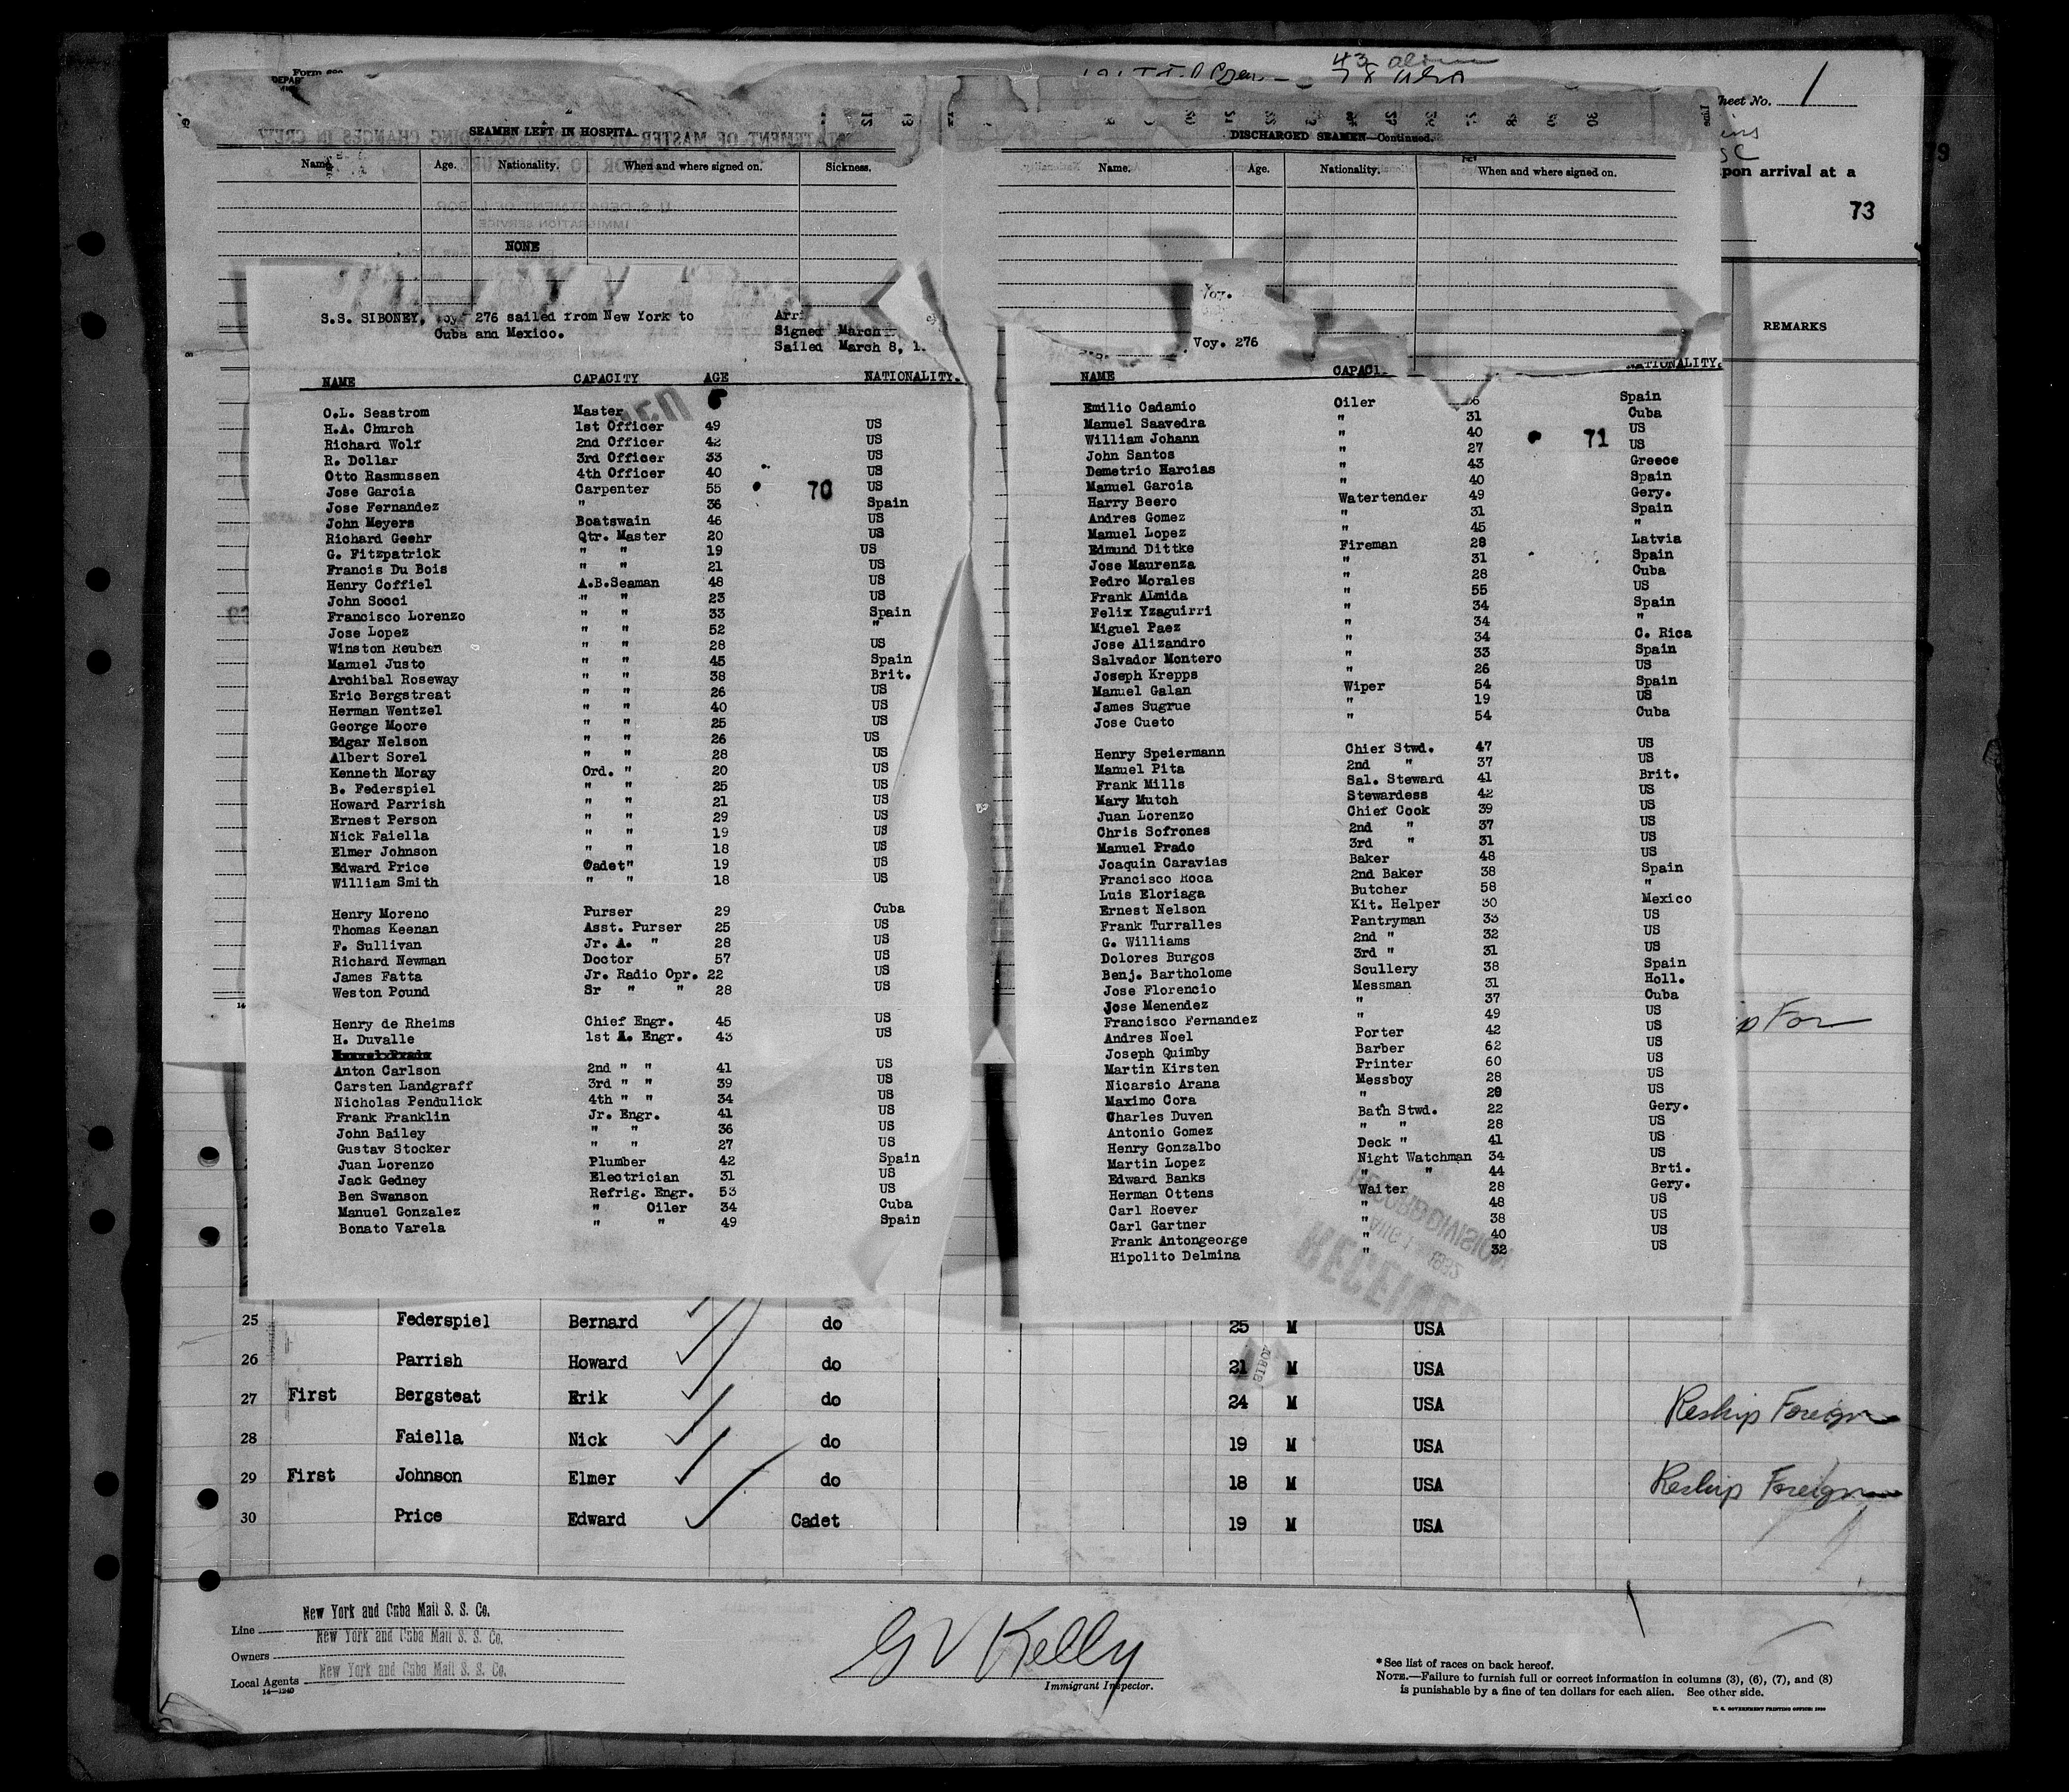 43 alien
Sheet No. 1
SEAMEN LEFT IN HOSPITA
DISCHARGED SEAMEN—Continued.
Name. Age. Nationality. When and where signed on. Sickness.
Name. Age. Nationality. When and where signed on.
upon arrival at a
79
73
NONE
REMARKS
S.S. SIBONEY, Voy. 276 sailed from New York to
Cuba and Mexico.
Arri
Signed March
Sailed March 8, 1
NAME CAPACITY AGE NATIONALITY.
O.L. Seastrom Master
H.A. Church 1st Officer 49 US
Richard Wolf 2nd Officer 42 US
R. Dollar 3rd Officer 33 US
Otto Rasmussen 4th Officer 40 US
Jose Garcia Carpenter 55 US
70
Jose Fernandez " 36 Spain
John Meyers Boatswain 46 US
Richard Geehr Qtr. Master 20 US
G. Fitzpatrick " " 19 US
Francis Du Bois " " 21 US
Henry Coffiel A.B.Seaman 48 US
John Socci " " 23 US
Francisco Lorenzo " " 33 Spain
Jose Lopez " " 52 "
Winston Reuben " " 28 US
Manuel Justo " " 45 Spain
Archibal Roseway " " 38 Brit.
Eric Bergstreat " " 26 US
Herman Wentzel " " 40 US
George Moore " " 25 US
Edgar Nelson " " 26 US
Albert Sorel " " 28 US
Kenneth Moray Ord. " 20 US
B. Federspiel " " 25 US
Howard Parrish " " 21 US
Ernest Person " " 29 US
Nick Faiella " " 19 US
Elmer Johnson " " 18 US
Edward Price Cadet" 19 US
William Smith " " 18 US
Henry Moreno Purser 29 Cuba
Thomas Keenan Asst. Purser 25 US
F. Sullivan Jr. A. " 28 US
Richard Newman Doctor 57 US
James Fatta Jr. Radio Opr. 22 US
Weston Pound Sr " " 28 US
Henry de Rheims Chief Engr. 45 US
H. Duvalle 1st A. Engr. 43 US
Anton Carlson 2nd " " 41 US
Carsten Landgraff 3rd " " 39 US
Nicholas Pendulick 4th " " 34 US
Frank Franklin Jr. Engr. 41 US
John Bailey " " 36 US
Gustav Stocker " " 27 US
Juan Lorenzo Plumber 42 Spain
Jack Gedney Electrician 31 US
Ben Swanson Refrig. Engr. 53 US
Manuel Gonzalez " Oiler 34 Cuba
Bonato Varela " " 49 Spain
Voy.
Voy. 276
NAME CAPACI NATIONALITY.
Emilio Cadamio Oiler Spain
Manuel Saavedra " 31 Cuba
William Johann " 40 US
71
John Santos " 27 US
Demetrio Harcias " 43 Greece
Manuel Garcia " 40 Spain
Harry Beero Watertender 49 Gery.
Andres Gomez " 31 Spain
Manuel Lopez " 45 "
Edmund Dittke Fireman 28 Latvia
Jose Maurenza " 31 Spain
Pedro Morales " 28 Cuba
Frank ALmida " 55 US
Felix Yzaguirri " 34 Spain
Miguel Paez " 34 "
Jose Alizandro " 34 C. Rica
Salvador Montero " 33 Spain
Joseph Krepps " 26 US
Manuel Galan Wiper 54 Spain
James Sugrue " 19 US
Jose Cueto " 54 Cuba
Henry Speiermann Chief Stwd. 47 US
Manuel Pita 2nd " 37 US
Frank Mills Sal. Steward 41 Brit.
Mary Mutch Stewardess 42 US
Juan Lorenzo Chief Cook 39 US
Chris Sofrones 2nd " 37 US
Manuel Prado 3rd " 31 US
Joaquin Caravias Baker 48 US
Francisco Roca 2nd Baker 38 Spain
Luis Eloriaga Butcher 58 "
Ernest Nelson Kit. Helper 30 Mexico
Frank Turralles Pantryman 33 US
G. Williams 2nd " 32 US
Dolores Burgos 3rd " 31 US
Benj. Bartholome Scullery 38 Spain
Jose Florencio Messman 31 Holl.
Jose Menendez " 37 Cuba
Francisco Fernandez " 49 US
Andres Noel Porter 42 US
Joseph Quimby Barber 62 US
Martin Kirsten Printer 60 US
Nicarsio Arana Messboy 28 US
Maximo Cora " 29 US
Charles Duven Bath Stwd. 22 Gery.
Antonio Gomez " " 28 US
Henry Gonzalbo Deck " 41 US
Martin Lopez Night Watchman 34 US
Edward Banks " " 44 Brti.
Herman Ottens Waiter 28 Gery.
Carl Roever " 48 US
Carl Gartner " 38 US
Frank Antongeorge " 40 US
Hipolito Delmina " 32 US
25 Federspiel Bernard do 25 M USA
26 Parrish Howard do 21 M USA
27 First Bergsteat Erik do 24 M USA Reship Foreign
28 Faiella Nick do 19 M USA
29 First Johnson Elmer do 18 M USA Reship Foreign
30 Price Edward Cadet 19 M USA
Line New York and Cuba Mail S. S. Co.
Owners New York and Cuba Mail S. S. Co.
Local Agents New York and Cuba Mail S. S. Co.
14—1240
G V Kelly
Immigrant Inspector.
*See list of races on back hereof.
NOTE.—Failure to furnish full or correct information in columns (3), (6), (7), and (8)
is punishable by a fine of ten dollars for each alien. See other side.
U. S. GOVERNMENT PRINTING OFFICE: 1930